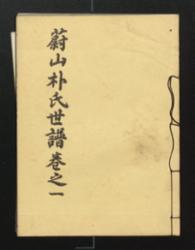 蔚山朴氏世譜卷之一